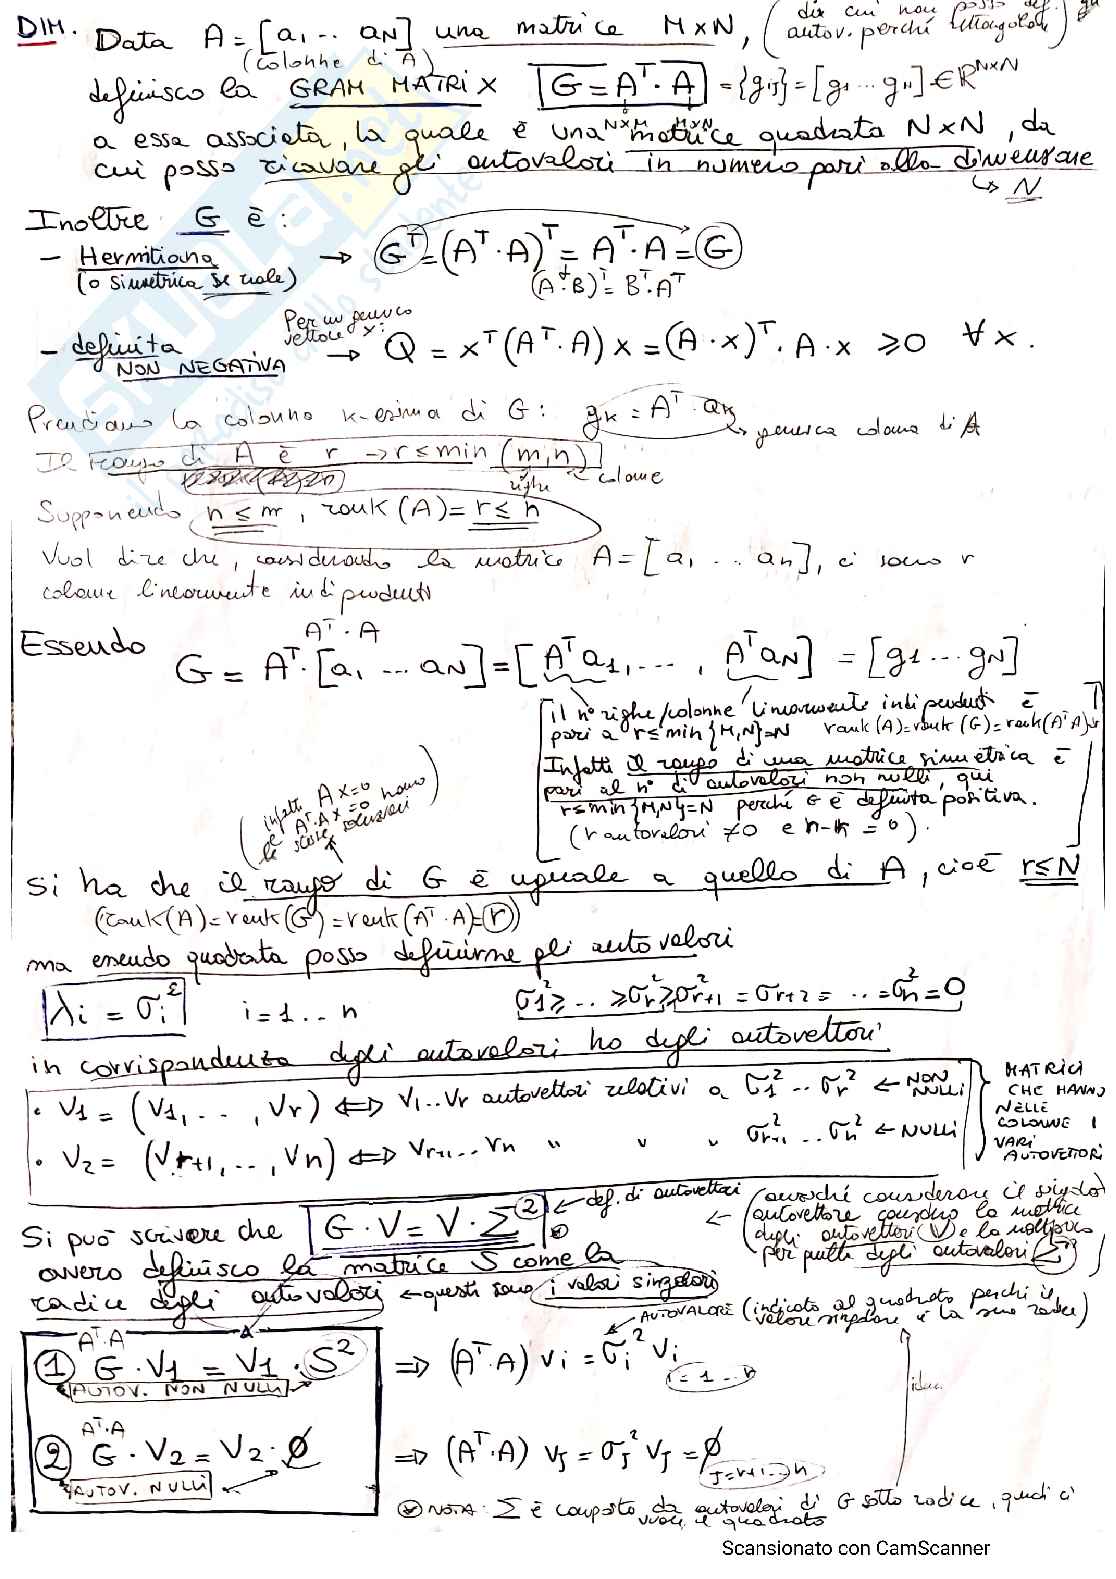 DIM. Data A = [a₁ ·· aN] una matrice M×N, (di cui non posso def. autov. perché rettangolare)
(colonne di A)
definisco la GRAM MATRIX G = Aᵀ · A = {gij} = [g₁ ··· gN] ∈ R^N×N
N×M M×N
a essa associata, la quale è una matrice quadrata N×N, da
cui posso ricavare gli autovalori in numero pari alla dimensione
↳ N
Inoltre G è:
- Hermitiana → Gᵀ = (Aᵀ · A)ᵀ = Aᵀ · A = G
(o simmetrica se reale) (A·B)ᵀ = Bᵀ·Aᵀ
Per un generico vettore x:
- definita NON NEGATIVA → Q = xᵀ(Aᵀ · A) x = (A · x)ᵀ · A · x ≥ 0 ∀ x.
Prendiamo la colonna k-esima di G: gk = Aᵀ · ak → generica colonna di A
Il rango di A è r → r ≤ min (m,n)
righe colonne
Supponendo n ≤ m, rank(A) = r ≤ n
Vuol dire che, considerando la matrice A = [a₁ ·· an], ci sono r
colonne linearmente indipendenti
Aᵀ · A
Essendo G = Aᵀ · [a₁ ... aN] = [Aᵀa₁, ..., AᵀaN] = [g1 ... gN]
il n° righe/colonne linearmente indipendenti è
pari a r ≤ min{M,N}=N rank(A)=rank(G)=rank(AᵀA)=r
Infatti il rango di una matrice simmetrica è
pari al n° di autovalori non nulli, qui
r ≤ min{M,N}=N perché G è definita positiva.
(r autovalori ≠0 e n-r = 0).
(infatti Ax=0 e Aᵀ·Ax=0 hanno le stesse soluzioni)
Si ha che il rango di G è uguale a quello di A, cioè r ≤ N
(rank(A) = rank(G) = rank(Aᵀ · A) = r)
ma essendo quadrata posso definirne gli autovalori
λi = σi² i = 1 .. n σ1² ≥ .. ≥ σr² ≥ σ²r+1 = σr+2 = .. = σn² = 0
in corrispondenza degli autovalori ho degli autovettori
• V1 = (V1, .. , Vr) ⟺ V1 .. Vr autovettori relativi a σ1² .. σr² ← NON NULLI
• V2 = (Vr+1, .. , Vn) ⟺ Vr+1 ... Vn " " " σ²r+1 .. σn² ← NULLI
MATRICI
CHE HANNO
NELLE
COLONNE I
VARI
AUTOVETTORI
Si può scrivere che G · V = V · Σ² ← def. di autovettori
← (anziché considerare il singolo
autovettore considero la matrice
degli autovettori (V) e la moltiplico
per quella degli autovalori Σ²)
ovvero definisco la matrice S come la
radice degli autovalori ← questi sono i valori singolari
AUTOVALORE (indicato al quadrato perchè il
valore singolare è la sua radice)
Aᵀ·A
① G · V1 = V1 · S² ⇒ (Aᵀ·A) vi = σi² vi
AUTOV. NON NULLI i = 1 .. r
idem
Aᵀ·A
② G · V2 = V2 · ∅ ⇒ (Aᵀ·A) vj = σj² vj = ∅
AUTOV. NULLI j = r+1 ... n
NOTA: Σ è composto da autovalori di G sotto radice, quindi ci
vuole il quadrato
Scansionato con CamScanner